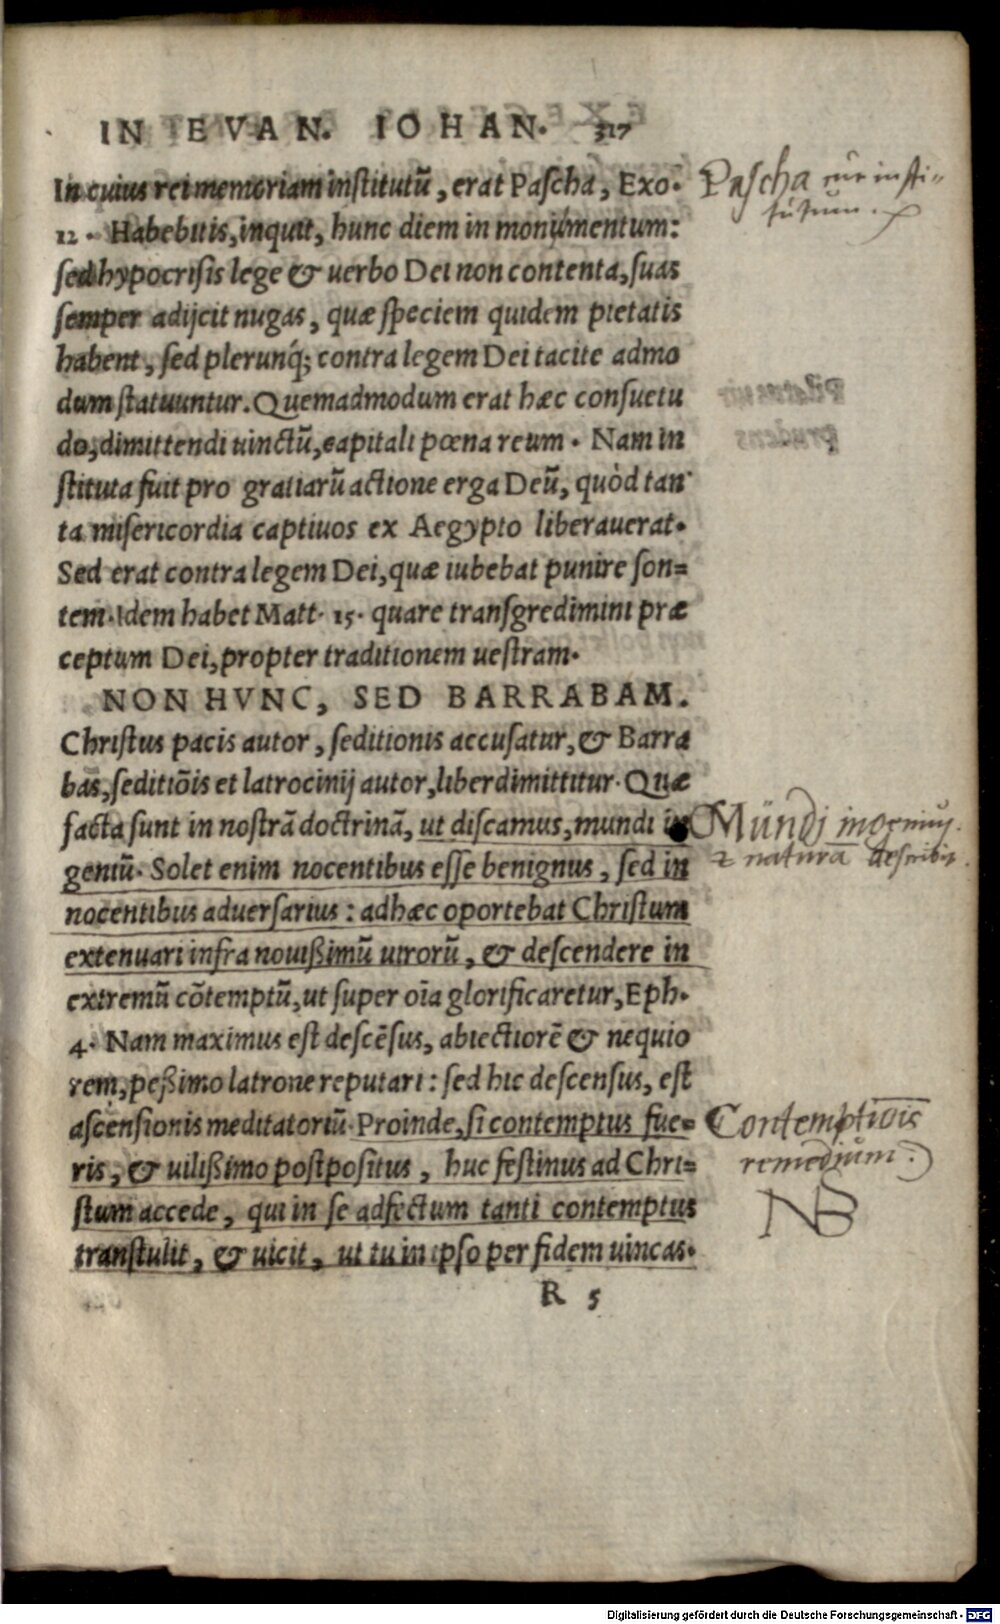 IN EVAN. IOHAN. 317
In cuius rei memoriam institutũ, erat Pascha, Exo.
12. Habebitis, inquit, hunc diem in monumentum:
sed hypocrisis lege & uerbo Dei non contenta, suas
semper adijcit nugas, quæ speciem quidem pietatis
habent, sed plerunq́; contra legem Dei tacite admo
dum statuuntur. Quemadmodum erat hæc consuetu
do, dimittendi uinctũ, capitali pœna reum. Nam in
stituta fuit pro gratiarũ actione erga Deũ, quòd tan
ta misericordia captiuos ex Aegypto liberauerat.
Sed erat contra legem Dei, quæ iubebat punire son=
tem. Idem habet Matt. 15. quare transgredimini præ
ceptum Dei, propter traditionem uestram.
NON HVNC, SED BARRABAM.
Christus pacis autor, seditionis accusatur, & Barra
bas, seditiõis et latrocinij autor, liber dimittitur. Quæ
facta sunt in nostrã doctrinã, ut discamus, mundi in
geniũ. Solet enim nocentibus esse benignus, sed in
nocentibus aduersarius: ad hæc oportebat Christum
extenuari infra nouißimũ uirorũ, & descendere in
extremũ cõtemptũ, ut super oĩa glorificaretur, Eph.
4. Nam maximus est descẽsus, abiectiorẽ & nequio
rem, peßimo latrone reputari: sed hic descensus, est
ascensionis meditatoriũ. Proinde, si contemptus fue=
ris, & uilißimo postpositus, huc festinus ad Chri=
stum accede, qui in se adfectum tanti contemptus
transtulit, & uicit, ut tu in ipso per fidem uincas.
R 5
Pascha cur insti=
tutum.
Mundi ingenium
& naturã describit.
Contemptiõis
remedium.
NB
Digitalisierung gefördert durch die Deutsche Forschungsgemeinschaft - DFG